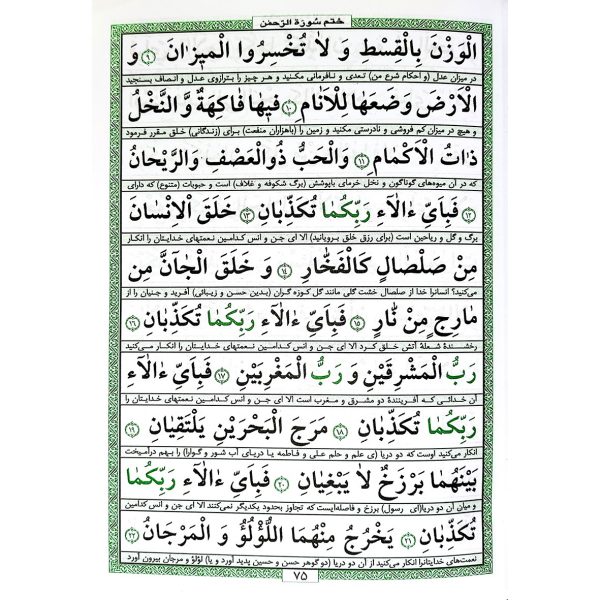 ختم سورة الرحمن
الْوَزْنَ بِالْقِسْطِ وَ لَا تُخْسِرُوا الْمِيزَانَ ۹ وَ
در میزان عدل (و احکام شرع من) تعدی و نافرمانی مکنید و هر چیز را بترازوی عدل و انصاف بسنجید
الْأَرْضَ وَضَعَهَا لِلْأَنَامِ ۱۰ فِيهَا فَاكِهَةٌ وَّ النَّخْلُ
و هیچ در میزان کم فروشی و نادرستی مکنید و زمین را (باهزاران منفعت) برای (زندگانی) خلق مقرر فرمود
ذَاتُ الْأَكْمَامِ ۱۱ وَالْحَبُّ ذُوالْعَصْفِ وَالرَّيْحَانُ
که در آن میوه‌های گوناگون و نخل خرمای باپوشش (برگ شکوفه و غلاف) است و حبوبات (متنوع) که دارای
۱۲ فَبِأَيِّ ءَالَاءِ رَبِّكُمَا تُكَذِّبَانِ ۱۳ خَلَقَ الْاِنْسَانَ
برگ و گل و ریاحین است (برای رزق خلق برویانید) الا ای جن و انس کدامین نعمتهای خدایتان را انکار
مِنْ صَلْصَالٍ كَالْفَخَّارِ ۱۴ وَ خَلَقَ الْجَآنَّ مِن
می‌کنید؟ انسانرا خدا از صلصال خشت گلی مانند گل کوزه گران (بدین حسن و زیبائی) آفرید و جنیان را از
مَارِجٍ مِنْ نَّارٍ ۱۵ فَبِأَيِّ ءَالَاءِ رَبِّكُمَا تُكَذِّبَانِ ۱۶
رخشندهٔ شعلهٔ آتش خلق کرد الا ای جن و انس کدامین نعمتهای خدایتان را انکار می‌کنید
رَبُّ الْمَشْرِقَيْنِ وَ رَبُّ الْمَغْرِبَيْنِ ۱۷ فَبِأَيِّ ءَالَاءِ
آن خدائی که آفرینندهٔ دو مشرق و مغرب است الا ای جن و انس کدامین نعمتهای خدایتان را
رَبِّكُمَا تُكَذِّبَانِ ۱۸ مَرَجَ الْبَحْرَيْنِ يَلْتَقِيَانِ ۱۹
انکار می‌کنید اوست که دو دریا (ی علم و حلم علی و فاطمه یا دریای آب شور و گوارا) را بهم درآمیخت
بَيْنَهُمَا بَرْزَخٌ لَا يَبْغِيَانِ ۲۰ فَبِأَيِّ ءَالَاءِ رَبِّكُمَا
و میان آن دو دریا(ای رسول) برزخ و فاصله‌ایست که تجاوز بحدود یکدیگر نمی‌کنند الا ای جن و انس کدامین
تُكَذِّبَانِ ۲۱ يَخْرُجُ مِنْهُمَا اللُّؤْلُؤُ وَ الْمَرْجَانُ ۲۲
نعمت‌های خدایتانرا انکار می‌کنید از آن دو دریا (دو گوهر حسن و حسین پدید آورد و یا) لؤلؤ و مرجان بیرون آورد
۷۵